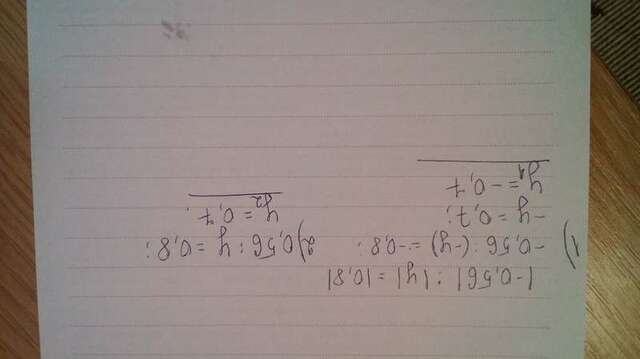 |-0,56| : |y| = |0,8|
1) -0,56 : (-y) = -0,8;
-y = 0,7;
y1 = -0,7
2) 0,56 : y = 0,8;
y2 = 0,7.